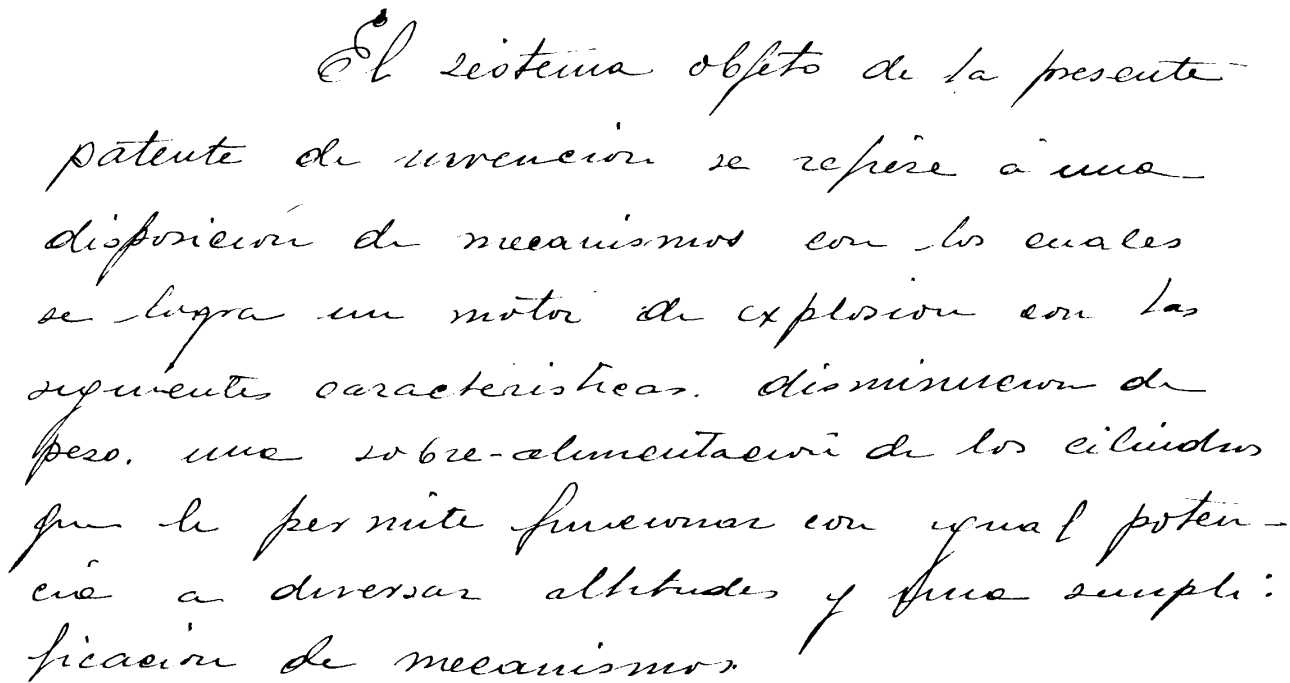 El sistema objeto de la presente
patente de invención se refiere á una
disposición de mecanismos con los cuales
se logra un motor de explosion con las
siguientes caracteristicas. disminucion de
peso. una sobre-alimentación de los cilindros
que le permite funcionar con igual poten-
cia a diversas altitudes y una simpli-
ficación de mecanismos.